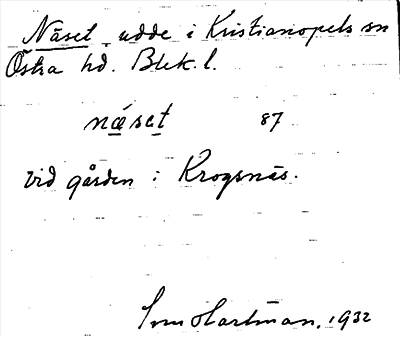 Näset, udde i Kristianopels sn
Östra hd. Blek. l.
næset 87
vid gården : Krogsnäs.
Hartman, 1932